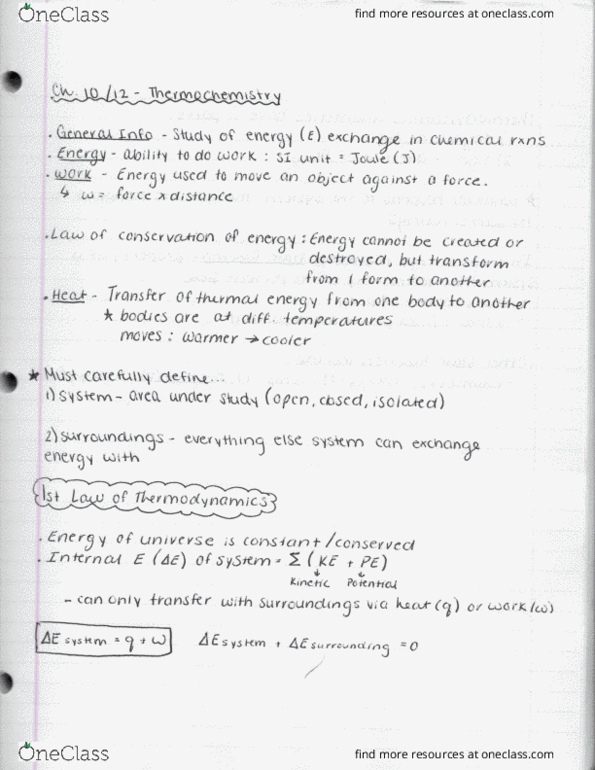 OneClass
find more resources at oneclass.com
Ch. 10/12 - Thermochemistry
. General Info - Study of energy (E) exchange in chemical rxns
. Energy - ability to do work : SI unit = Joule (J)
. Work - Energy used to move an object against a force.
↳ w = force x distance
. Law of conservation of energy : Energy cannot be created or
destroyed, but transform
from 1 form to another
. Heat - Transfer of thermal energy from one body to another
* bodies are at diff. temperatures
moves : warmer → cooler
* Must carefully define...
1) System - area under study (open, closed, isolated)
2) surroundings - everything else system can exchange
energy with
1st Law of Thermodynamics
. Energy of universe is constant/conserved
. Internal E (ΔE) of system = Σ ( KE + PE )
Kinetic Potential
- can only transfer with surroundings via heat (q) or work (w)
ΔE system = q + w ΔE system + ΔE surrounding = 0
OneClass
find more resources at oneclass.com